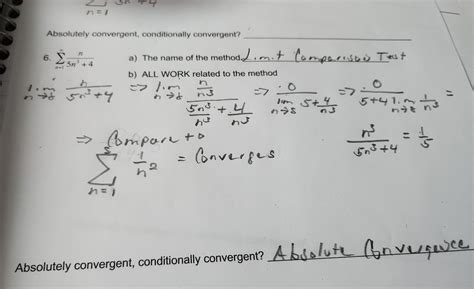 n=1
Absolutely convergent, conditionally convergent?
6. ∑ n=1 ∞ n/(5n³+4) a) The name of the method Limit Comparison Test
b) ALL WORK related to the method
lim n/(5n³+4) ⇒ lim (n/n³)/(5n³/n³ + 4/n³) ⇒ 0/(lim 5+4/n³) ⇒ 0/(5+4 lim 1/n³) =
⇒ Compare to n³/(5n³+4) = 1/5
∑ n=1 1/n² = Converges
Absolutely convergent, conditionally convergent? Absolute Convergence